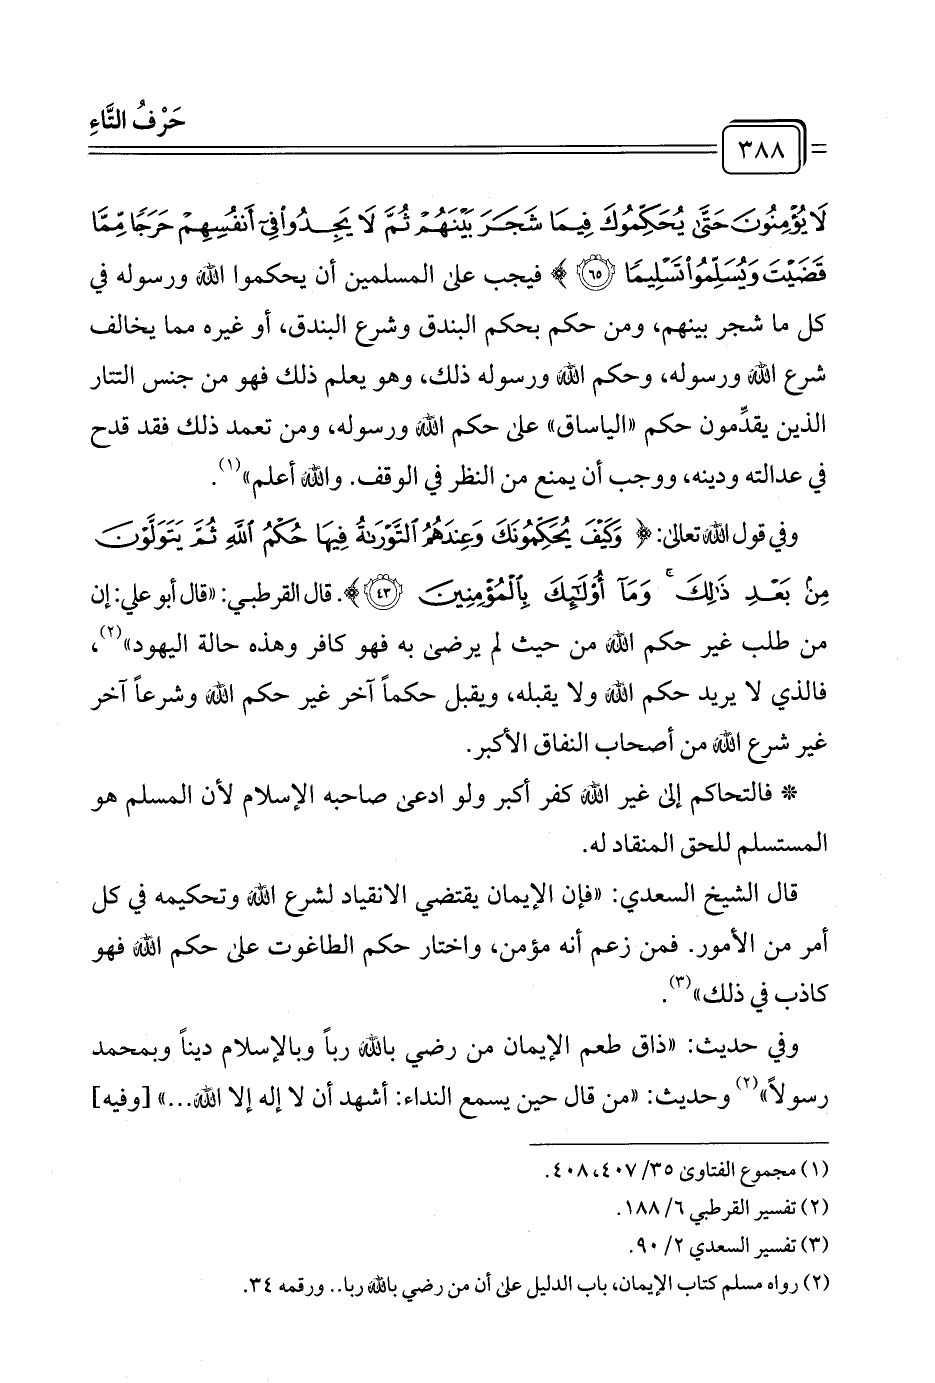 حَرْفُ التَّاءِ
٣٨٨
لَا يُؤْمِنُونَ حَتَّىٰ يُحَكِّمُوكَ فِيمَا شَجَرَ بَيْنَهُمْ ثُمَّ لَا يَجِدُوا۟ فِىٓ أَنفُسِهِمْ حَرَجًا مِّمَّا
قَضَيْتَ وَيُسَلِّمُوا۟ تَسْلِيمًا ﴿٦٥﴾ ﴾ فيجب على المسلمين أن يحكموا الله ورسوله في
كل ما شجر بينهم، ومن حكم بحكم البندق وشرع البندق، أو غيره مما يخالف
شرع الله ورسوله، وحكم الله ورسوله ذلك، وهو يعلم ذلك فهو من جنس التتار
الذين يقدِّمون حكم «الياساق» على حكم الله ورسوله، ومن تعمد ذلك فقد قدح
في عدالته ودينه، ووجب أن يمنع من النظر في الوقف. والله أعلم»(١).
وفي قول الله تعالى: ﴿ وَكَيْفَ يُحَكِّمُونَكَ وَعِندَهُمُ ٱلتَّوْرَىٰةُ فِيهَا حُكْمُ ٱللَّهِ ثُمَّ يَتَوَلَّوْنَ
مِنۢ بَعْدِ ذَٰلِكَ ۚ وَمَآ أُو۟لَٰٓئِكَ بِٱلْمُؤْمِنِينَ ﴿٤٣﴾ ﴾. قال القرطبي: «قال أبو علي: إن
من طلب غير حكم الله من حيث لم يرضى به فهو كافر وهذه حالة اليهود»(٢)،
فالذي لا يريد حكم الله ولا يقبله، ويقبل حكماً آخر غير حكم الله وشرعاً آخر
غير شرع الله من أصحاب النفاق الأكبر.
* فالتحاكم إلى غير الله كفر أكبر ولو ادعى صاحبه الإسلام لأن المسلم هو
المستسلم للحق المنقاد له.
قال الشيخ السعدي: «فإن الإيمان يقتضي الانقياد لشرع الله وتحكيمه في كل
أمر من الأمور. فمن زعم أنه مؤمن، واختار حكم الطاغوت على حكم الله فهو
كاذب في ذلك»(٣).
وفي حديث: «ذاق طعم الإيمان من رضي بالله رباً وبالإسلام ديناً وبمحمد
رسولاً»(٢) وحديث: «من قال حين يسمع النداء: أشهد أن لا إله إلا الله...» [وفيه]
(١) مجموع الفتاوى ٣٥/ ٤٠٧، ٤٠٨.
(٢) تفسير القرطبي ٦/ ١٨٨.
(٣) تفسير السعدي ٢/ ٩٠.
(٢) رواه مسلم كتاب الإيمان، باب الدليل على أن من رضي بالله ربا.. ورقمه ٣٤.